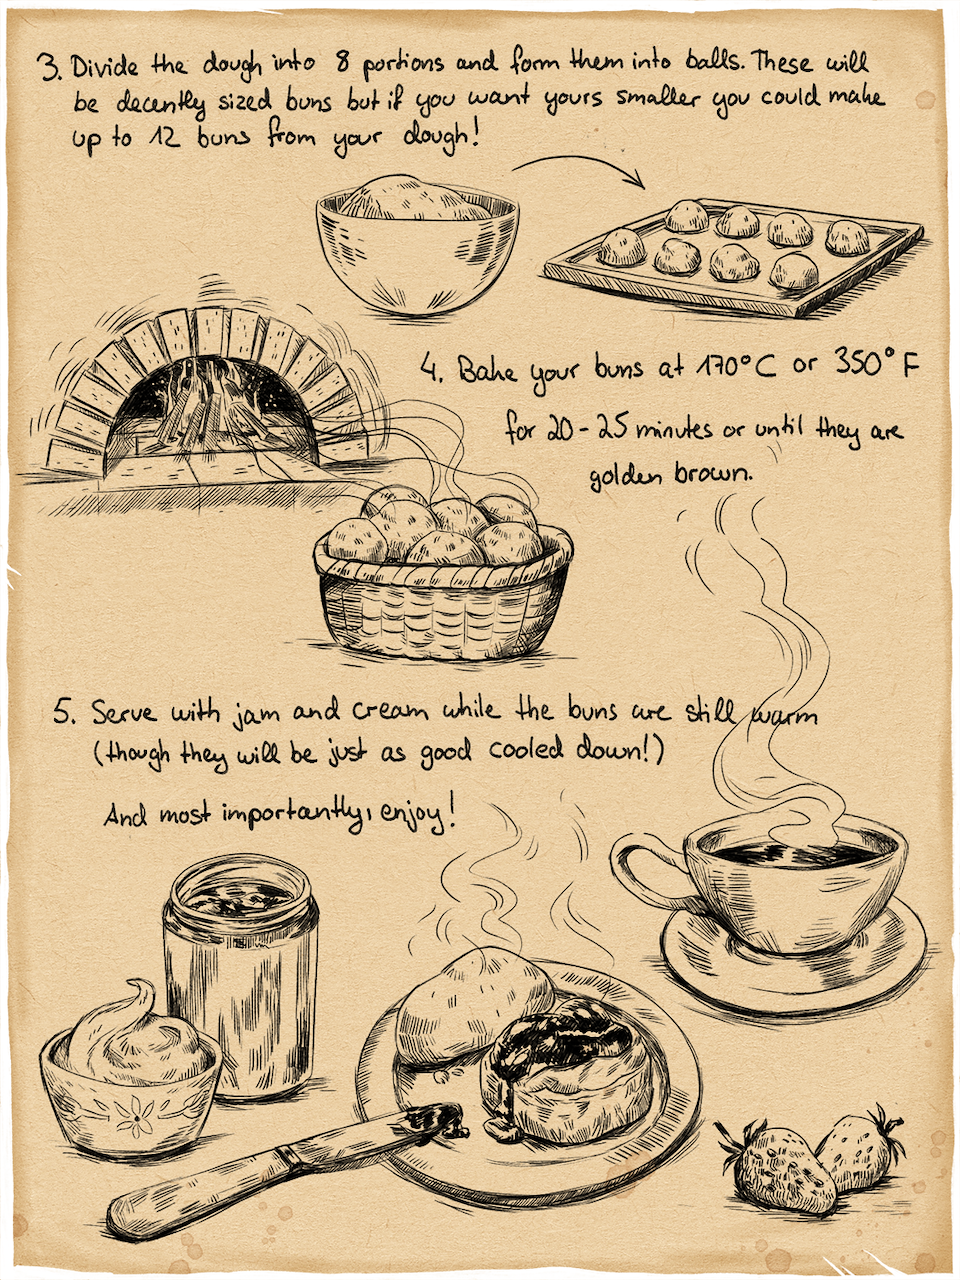 3. Divide the dough into 8 portions and form them into balls. These will
be decently sized buns but if you want yours smaller you could make
up to 12 buns from your dough!
4. Bake your buns at 170°C or 350°F
for 20-25 minutes or until they are
golden brown.
5. Serve with jam and cream while the buns are still warm
(though they will be just as good cooled down!)
And most importantly, enjoy!